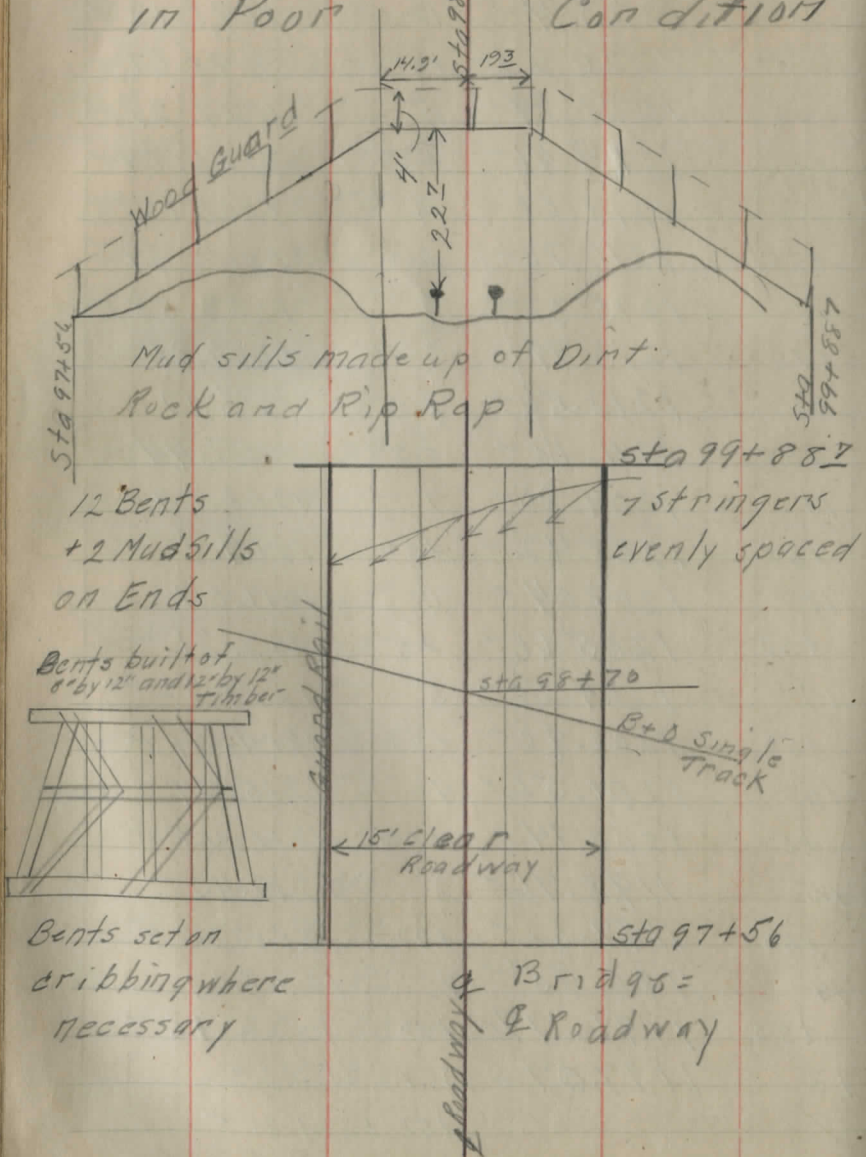 in Poor Condition
Sta 98
14.9'
19 3
Wood Guard
4'
22 7
Mud sills made up of Dirt.
Rock and Rip Rap
Sta 97+56
Sta
99+887
Sta 99+887
7 stringers
evenly spaced
12 Bents
+2 MudSills
on Ends
Bents built of
8" by 12" and 12" by 12"
Timber
Guard Rail
Sta 98+70
B+O Single
Track
15' Clear
Roadway
Bents set on
cribbing where
necessary
Sta 97+56
℄ Bridge =
℄ Roadway
℄ Roadway